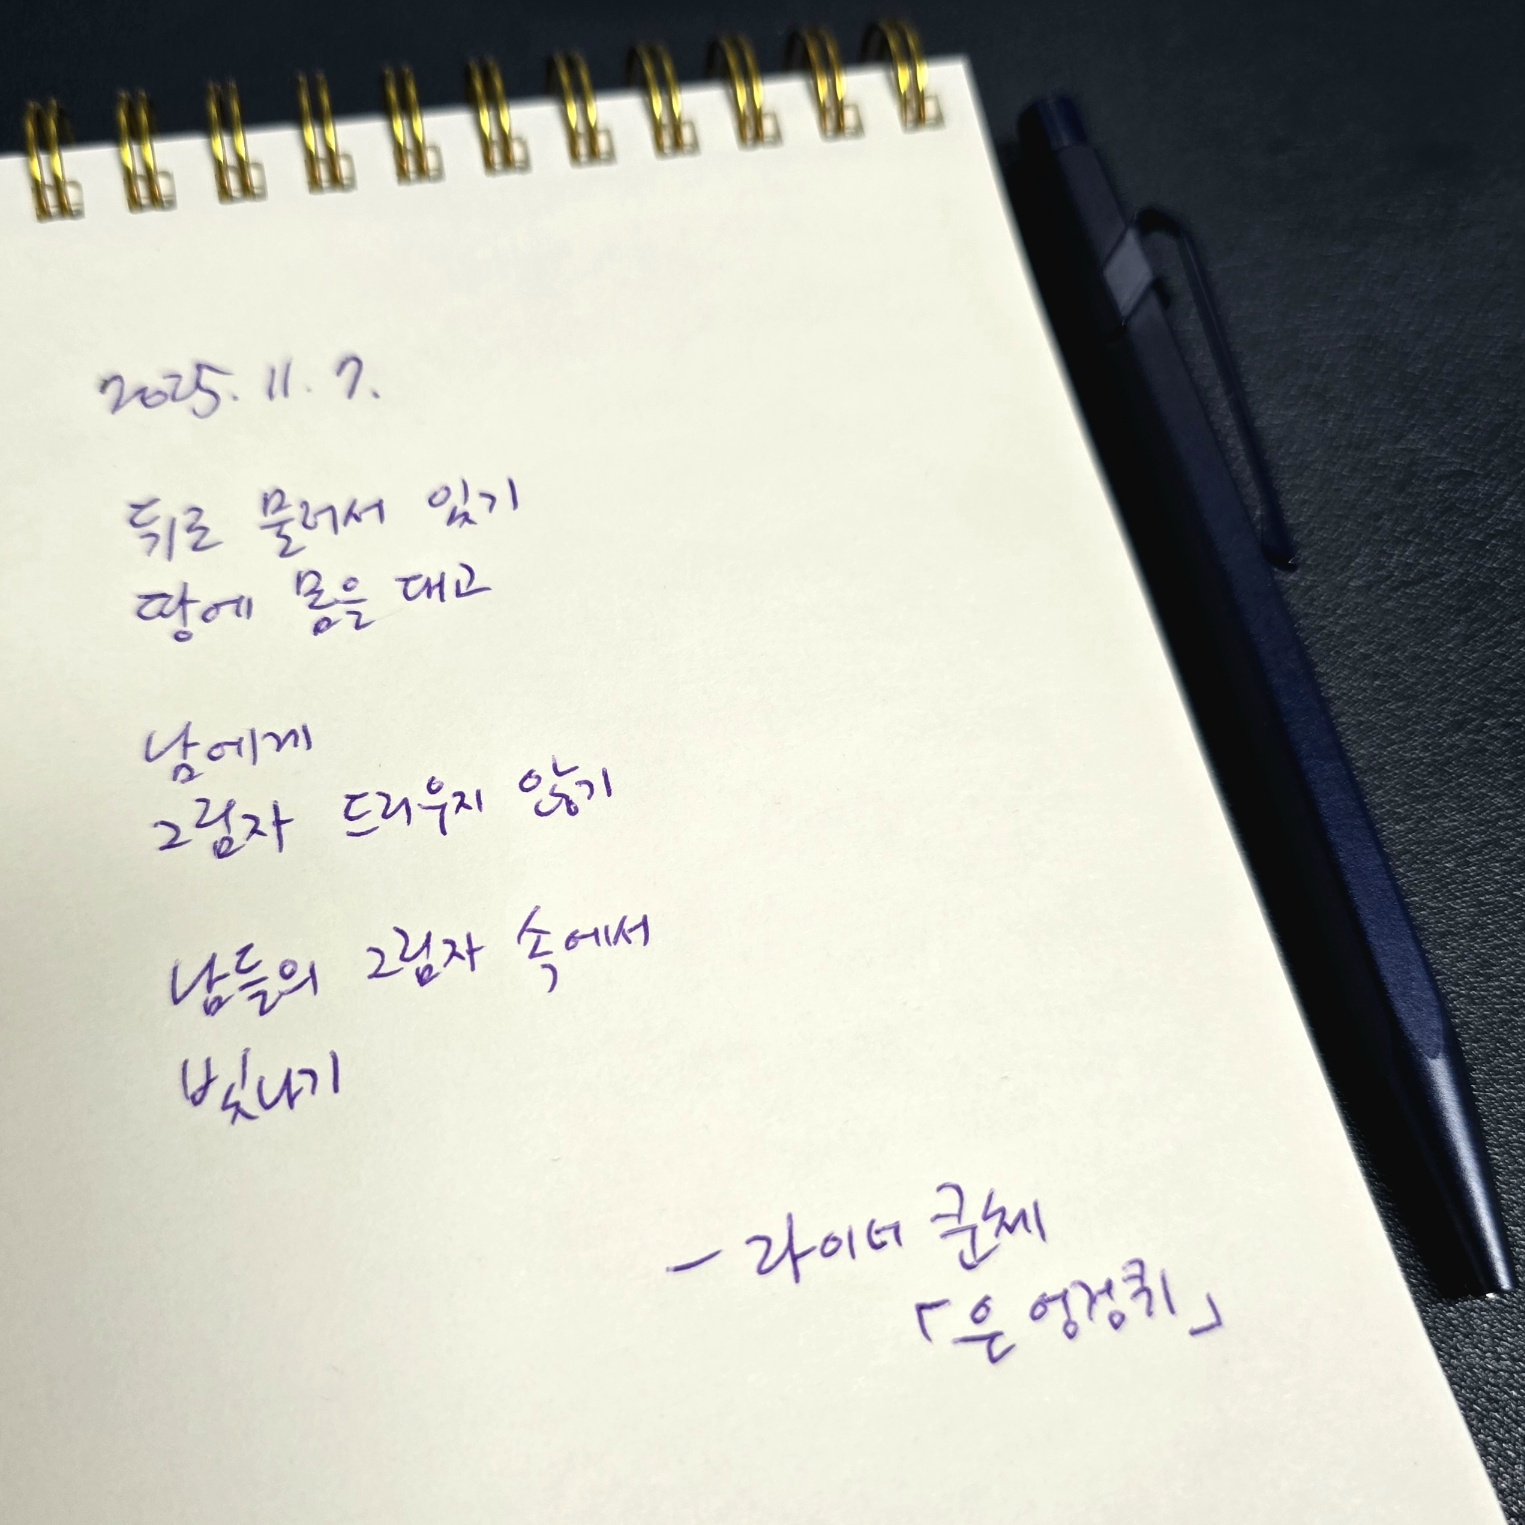 2025. 11. 7.
뒤로 물러서 있기
땅에 몸을 대고
남에게
그림자 드리우지 않기
남들의 그림자 속에서
빛나기
- 라이너 쿤체
「은 엉겅퀴」